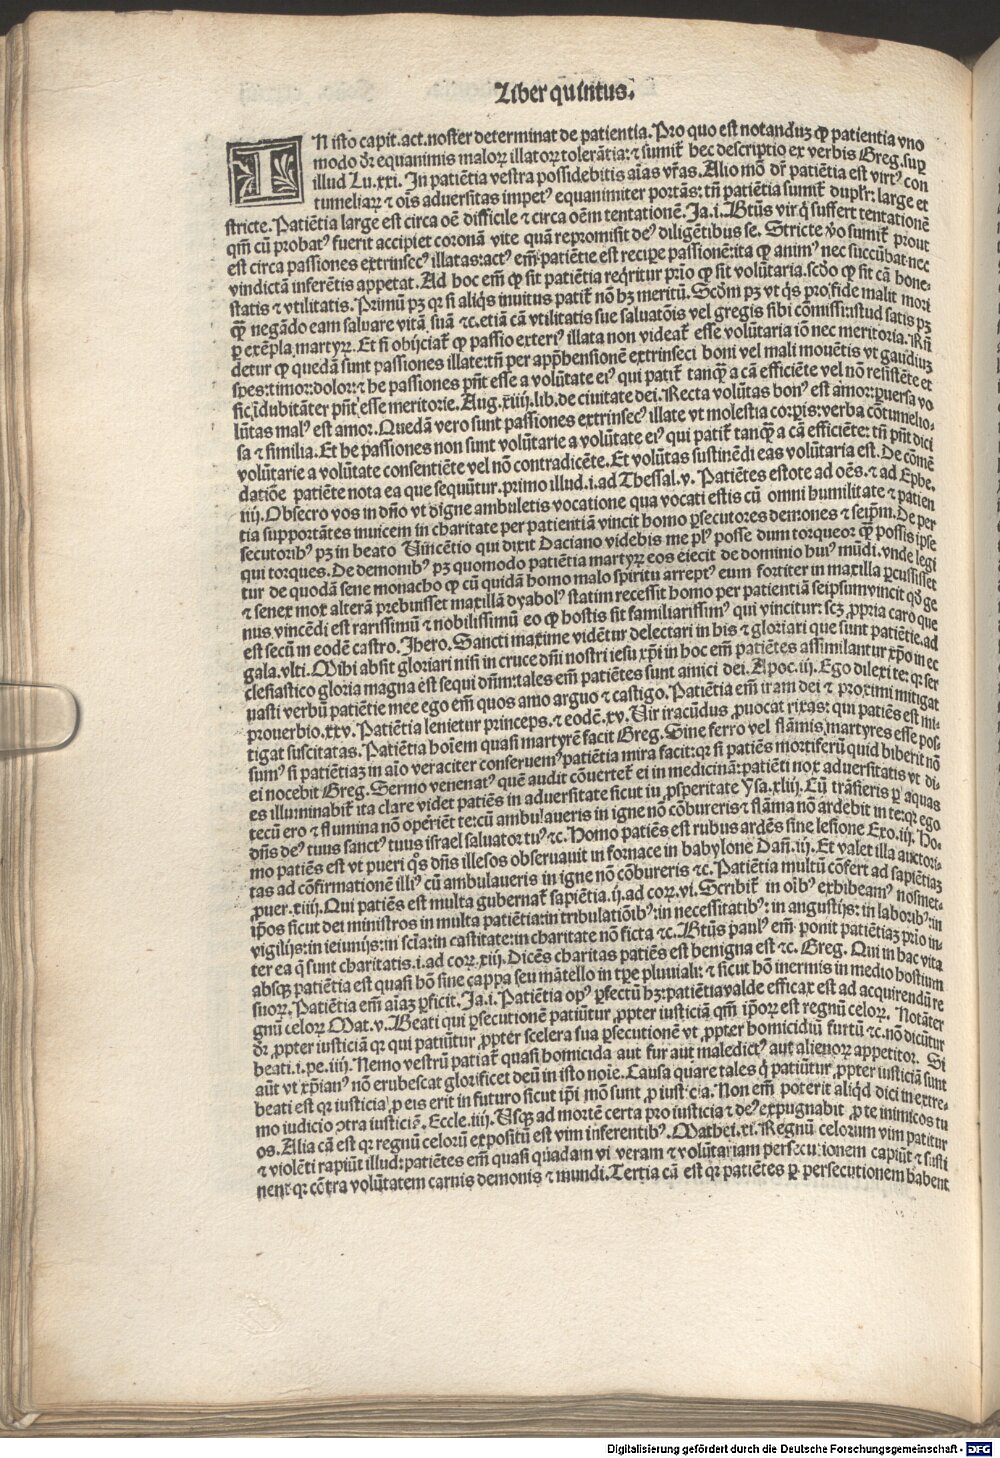 Liber quintus.
IN isto capit. act. noster determinat de patientia. Pro quo est notanduꝫ ꝙ patientia vno
modo dr̄ equanimis maloꝝ illatoꝝ tolerātia: ⁊ sumit̄ hec descriptio ex verbis Greg. sup̱
illud Lu. xxi. In patiētia vestra possidebitis aīas vr̄as. Alio mō dr̄ patiētia est virtꝰ con
tumeliaꝝ ⁊ oīs aduersitas impetꝰ equanimiter portās: tn̄ patiētia sumit̄ duplr̄: large et
stricte. Patiētia large est circa oē difficile ⁊ circa oēm tentationē. Ja. i. Btūs vir q̇ suffert tentationē
qm̄ cū probatꝰ fuerit accipiet coronā vite quā repromisit deꝰ diligētibus se. Stricte v̊o sumit̄ prout
est circa passiones extrinsecꝰ illatas: actꝰ em̄ patiētie est recipe passionē: ita ꝙ animꝰ nec succūbat nec
vindictā inferētis appetat. Ad hoc em̄ ꝙ sit patiētia req̇ritur prīo ꝙ sit volūtaria. scd̄o ꝙ sit cā hone-
statis ⁊ vtilitatis. Primū pꝫ qꝛ si aliq̇s inuitus patit̄ nō hꝫ meritū. Scd̄m pꝫ vt q̇s pro fide malit mori
ꝙ̄ negādo eam saluare vitā suā ⁊c. etiā cā vtilitatis sue saluatōis vel gregis sibi cōmissi: istud satis pꝫ
ꝑ exēpla martyꝝ. Et si obijciat̄ ꝙ passio exteriꝰ illata non videat̄ esse volūtaria iō nec meritoria. Rn̄
detur ꝙ quedā sunt passiones illate: tn̄ per app̄hensionē extrinseci boni vel mali mouētis vt gaudiuꝫ
spes: timor: dolor: ⁊ he passiones pn̄t esse a volūtate eiꝰ qui patit̄ tanqꝫ̄ a cā efficiēte vel nō resistēte et
sic īdubitāter pn̄t esse meritorie. Aug. xiiij. lib. de ciuitate dei. Recta volūtas bonꝰ est amor: ꝑuersa vo
lūtas malꝰ est amor. Quedā vero sunt passiones extrinsecꝰ illate vt molestia corꝑis: verba cōtumelio-
sa ⁊ similia. Et he passiones non sunt volūtarie a volūtate eiꝰ qui patit̄ tanqꝫ̄ a cā efficiēte: tn̄ pn̄t dici
volūtarie a volūtate consentiēte vel nō contradicēte. Et volūtas sustinēdi eas voluntaria est. De cōmē
datiōe patiēte nota ea que sequūtur. primo illud. i. ad Thessal. v. Patiētes estote ad oēs. ⁊ ad Ephe.
iiij. Obsecro vos in dn̄o vt digne ambuletis vocatione qua vocati estis cū omni humilitate ⁊ patien
tia supportātes inuicem in charitate per patientiā vincit homo ꝑsecutores demones ⁊ seip̄m. De per
secutoribꝰ pꝫ in beato Vincētio qui dixit Daciano videbis me plꝰ posse dum torqueor ꝙ̄ possis ipse
qui torques. De demonibꝰ pꝫ quomodo patiētia martyꝝ eos eiecit de dominio huiꝰ mūdi. vnde legi
tur de quodā sene monacho ꝙ cū quidā homo malo spiritu arreptꝰ eum fortiter in maxilla ꝑcussisset
⁊ senex mox alterā prebuisset maxillā dyabolꝰ statim recessit homo per patientiā seipsum vincit qd̄ ge
nus vincēdi est rarissimū ⁊ nobilissimū eo ꝙ hostis sit familiarissimꝰ qui vincitur: scꝫ ꝓpria caro que
est secū in eodē castro. Jhero. Sancti maxime vidētur delectari in his ⁊ gloriari que sunt patiētie. ad
gala. vlti. Mihi absit gloriari nisi in cruce dn̄i nostri iesu xp̄i in hoc em̄ patiētes assimilantur xp̄o in ec
clesiastico gloria magna est sequi dn̄m: tales em̄ patiētes sunt amici dei. Apoc. iij. Ego dilexi te: qꝛ ser
uasti verbū patiētie mee ego em̄ quos amo arguo ⁊ castigo. Patiētia em̄ iram dei ⁊ proximi mitigat
prouerbio. xxv. Patiētia lenietur princeps. ⁊ eodē. xv. Vir iracūdus ꝓuocat rixas: qui patiēs est mi-
tigat suscitatas. Patiētia hoīem quasi martyrē facit Greg. Sine ferro vel flāmis martyres esse pos-
sumꝰ si patiētiaꝫ in aīo veraciter conseruemꝰ patiētia mira facit: qꝛ si patiēs mortiferū quid biberit nō
ei nocebit Greg. Sermo venenatꝰ quē audit cōuertet̄ ei in medicinā: patiēti nox aduersitatis vt di-
es illuminabit̄ ita clare videt patiēs in aduersitate sicut iu ꝓsperitate Ysa. xliij. Cū trāsieris ꝑ aquas
tecū ero ⁊ flumina nō operiēt te: cū ambulaueris in igne nō cōbureris ⁊ flāma nō ardebit in te: qꝛ ego
dn̄s deꝰ tuus sanctꝰ tuus israel saluator tuꝰ ⁊c. Homo patiēs est rubus ardēs sine lesione Exo. iij. Ho-
mo patiēs est vt pueri qͦs dn̄s illesos obseruauit in fornace in babylone Dan̄. iij. Et valet illa auctori-
tas ad cōfirmationē illiꝰ cū ambulaueris in igne nō cōbureris ⁊c. Patiētia multū cōfert ad sapiētiaꝫ
ꝓuer. xiiij. Qui patiēs est multa gubernat̄ sapiētia. ij. ad coꝝ. vi. Scribit̄ in oībꝰ exhibeamꝰ nosmet-
ip̄os sicut dei ministros in multa patiētia: in tribulatiōibꝰ: in necessitatibꝰ: in angustijs: in laboribꝰ: in
vigilijs: in ieiunijs: in scīa: in castitate: in charitate nō ficta ⁊c. Btūs paulꝰ em̄ ponit patiētiaꝫ prīo in-
ter ea q̄ sunt charitatis. i. ad coꝝ. xiij. Dicēs charitas patiēs est benigna est ⁊c. Greg. Qui in hac vita
absqꝫ patiētia est quasi hō sine cappa seu mātello in tp̄e pluuiali: ⁊ sicut hō inermis in medio hostium
suoꝝ. Patiētia em̄ aīaꝫ ꝑficit. Ja. i. Patiētia opꝰ ꝑfectū hꝫ: patiētia valde efficax est ad acquirendū re
gnū celoꝝ Mat. v. Beati qui ꝑsecutionē patiūtur ꝓpter iusticiā qm̄ ip̄oꝝ est regnū celoꝝ. Notāter
dr̄ ꝓpter iusticiā qꝛ qui patiūtur ꝓpter scelera sua ꝑsecutionē vt ꝓpter homicidiū furtū ⁊c. nō dicūtur
beati. i. pe. iiij. Nemo vestrū patiat̄ quasi homicida aut fur aut maledictꝰ aut alienoꝝ appetitor. Si
aūt vt xp̄ianꝰ nō erubescat glorificet deū in isto noīe. Causa quare tales q̇ patiūtur ꝓpter iusticiā sunt
beati est qꝛ iusticia ꝓ eis erit in futuro sicut ip̄i mō sunt ꝓ iusticia. Non em̄ poterit aliqd̄ dici in extre-
mo iudicio ꝯtra iusticiē. Eccle. iiij. Vsqꝫ ad mortē certa pro iusticia ⁊ deꝰ expugnabit ꝓ te inimicos tu
os. Alia cā est qꝛ regnū celorū expositū est vim inferentibꝰ. Mathei. xi. Regnū celorum vim patitur
⁊ violēti rapiūt illud: patiētes em̄ quasi quādam vi veram ⁊ volūtariam persecutionem capiūt ⁊ susti
nent qꝛ cōtra volūtatem carnis demonis ⁊ mundi. Tertia cā est qꝛ patiētes ꝑ persecutionem habent
Digitalisierung gefördert durch die Deutsche Forschungsgemeinschaft - DFG